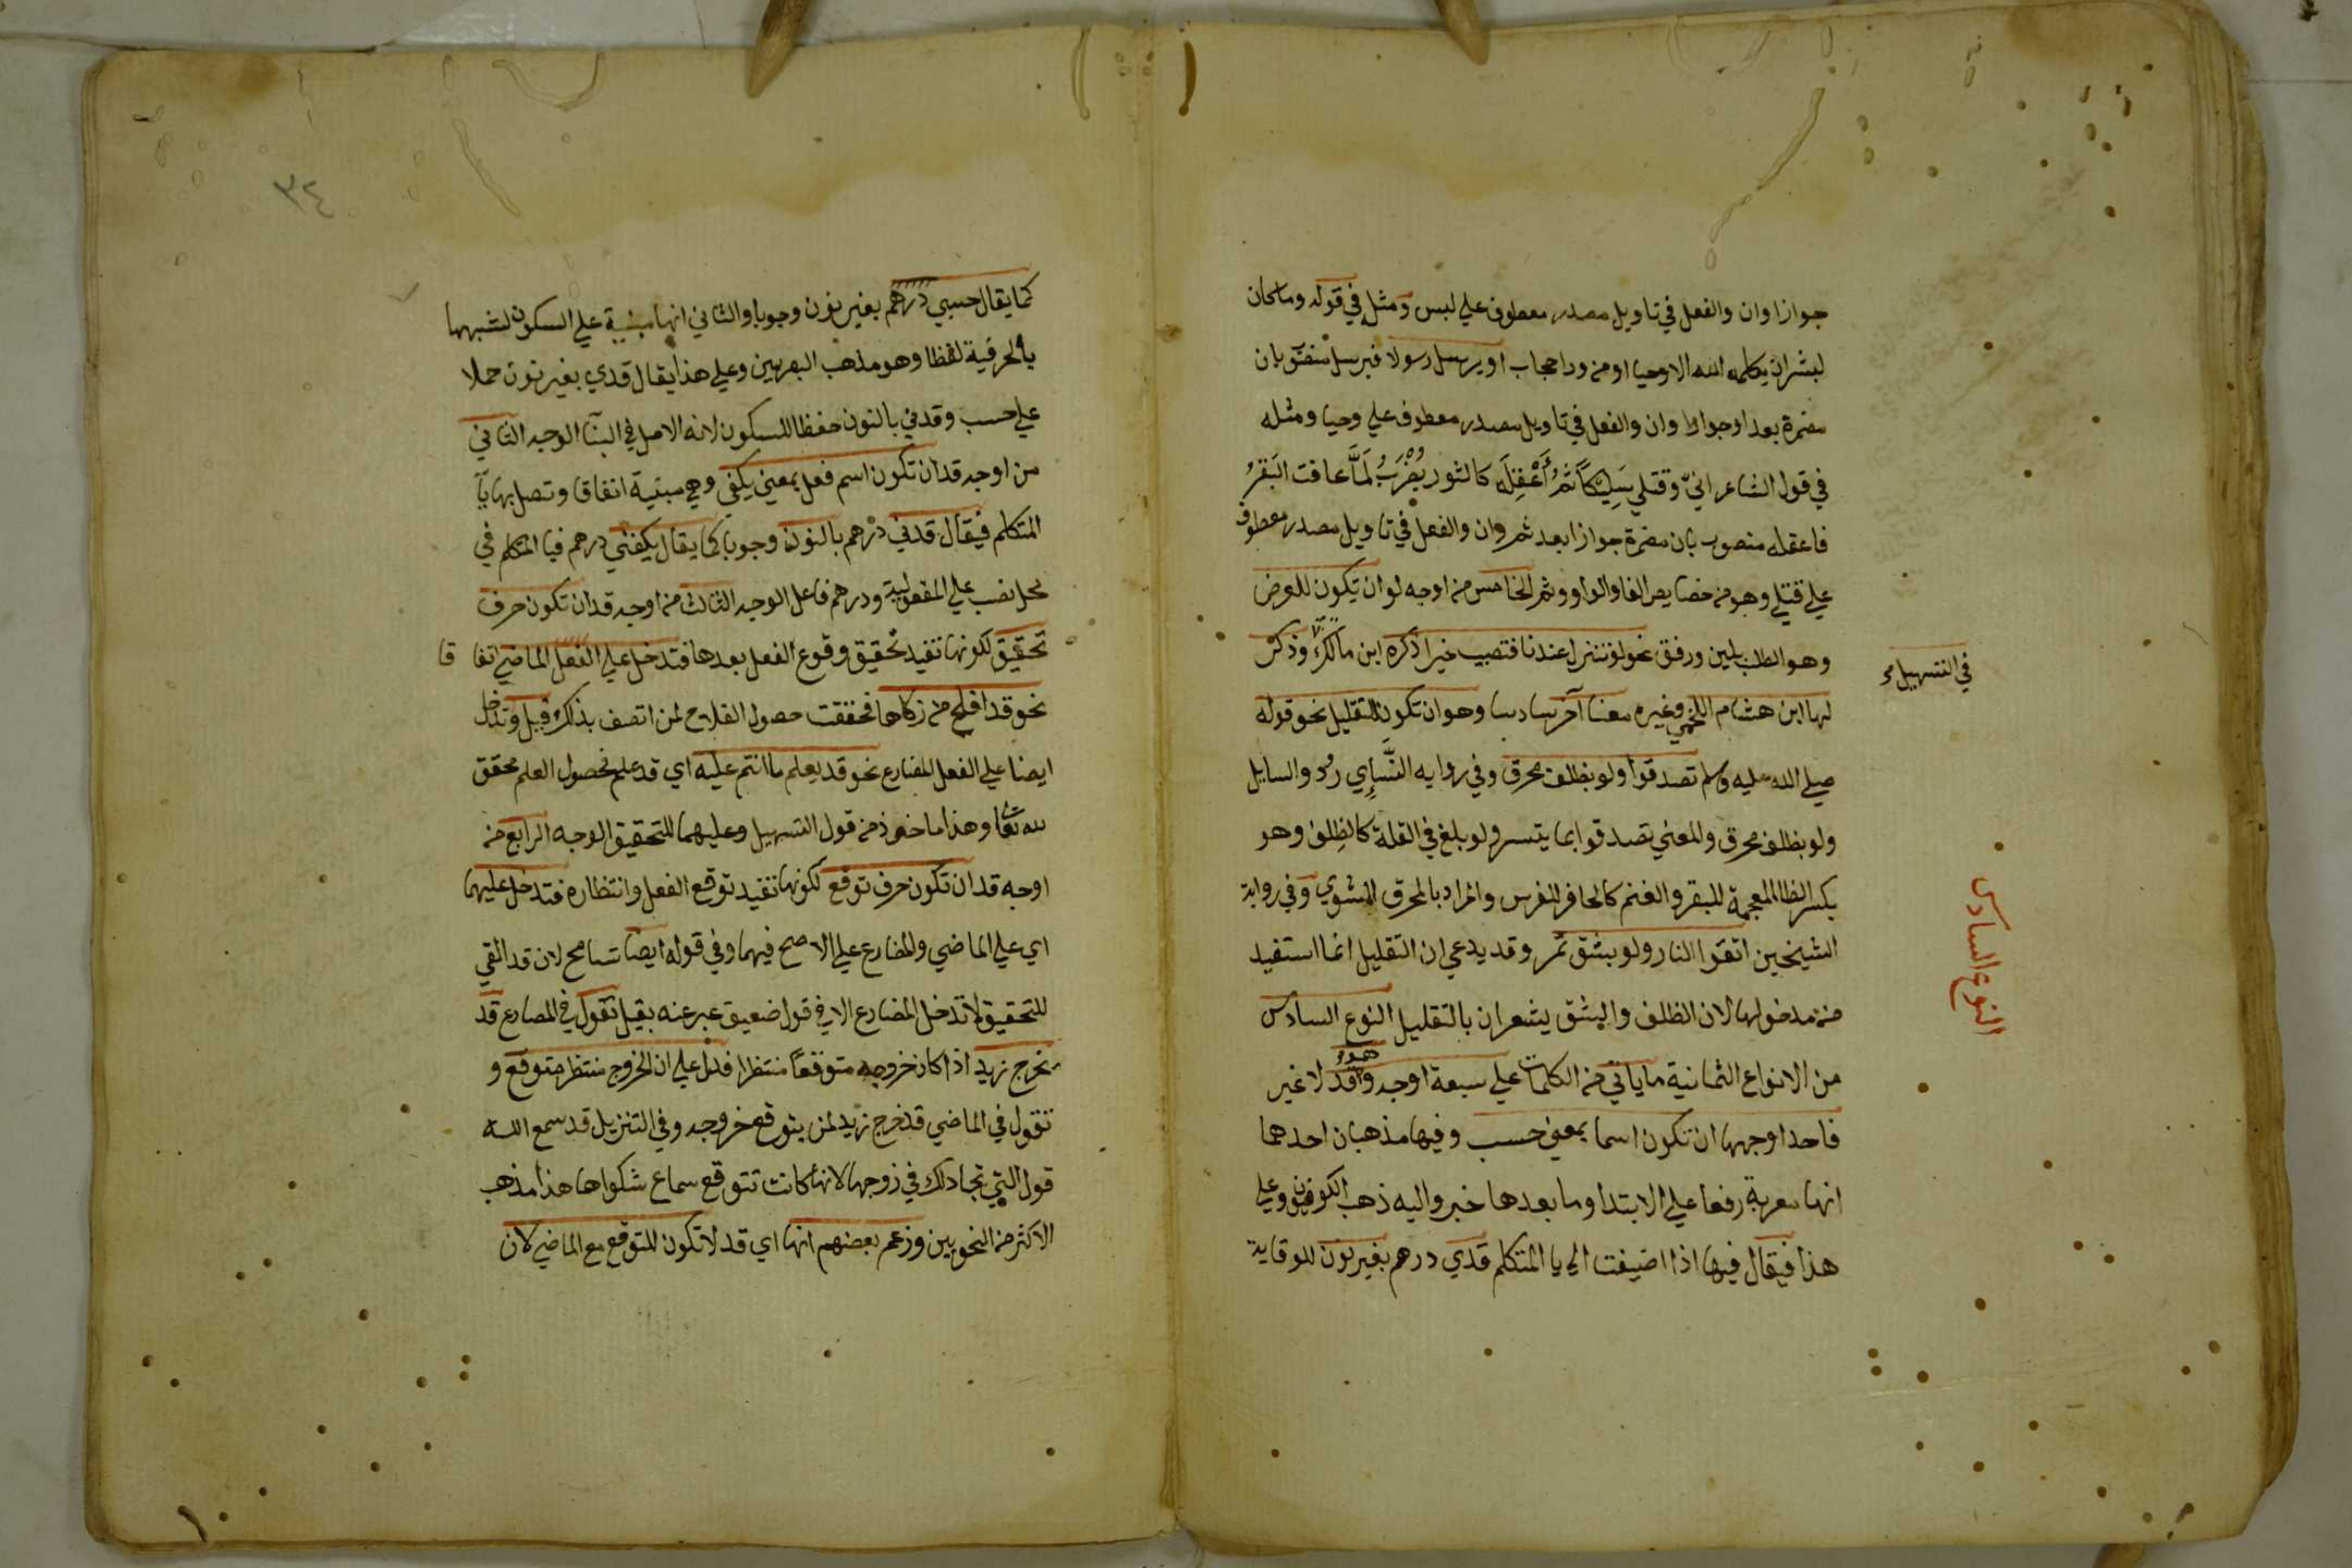 جوازا وان والفعل في تاويل مصدر معطوف علي لبس ومثل في قوله وما كان
لبشر ان يكلمه الله الا وحيا او من ورا حجاب او يرسل رسولا فيرسل منصوب بان
مضمرة بعد او جوازا وان والفعل في تاويل مصدر معطوف علي وحيا ومثله
في قول الشاعر اني وقتلي سليكا ثم أعقله كالثور يضرب لما عافت البقر
فاعقله منصوب بان مضمرة جوازا بعد ثم وان والفعل في تاويل مصدر معطوف
علي قتلي وهو من خصايص الفا والواو وثم الخامس من اوجه لو ان تكون للعرض
وهو الطلب بلين ورفق نحو لو تنزل عندنا فتصيب خيرا ذكره ابن مالك وذكر
في التسهيل
لها ابن هشام اللخمي وغيره معنا آخر سادسا وهو ان تكون للتقليل نحو قوله
صلي الله عليه وسلم تصدقوا ولو بظلف محرق وفي رواية النسإي ردوا السايل
ولو بظلف محرق والمعني تصدقوا بما يتسر ولو بلغ في القلة كالظلف وهو
بكسر الظا المعجمة للبقر والغنم كالحافر للفرس والمراد بالمحرق المشوي وفي رواية
الشيخين اتقوا النار ولو بشق تمر وقد يدعي ان التقليل انما استفيد
من مدخولها لان الظلف والشق يشعران بالتقليل النوع السادس
النوع السادس
من الانواع الثمانية ما ياتي من الكلمات علي سبعة اوجه وهو قد لا غير
فاحد اوجهها ان تكون اسما بمعني حسب وفيها مذهبان احدهما
انها معربة رفعا علي الابتدا وما بعدها خبر واليه ذهب الكوفيون وعلي
هذا فيقال فيها اذا اضيفت الي يا المتكلم قدي درهم بغير نون للوقاية
٣٤
كما يقال حسبي درهم بغير نون وجوبا والثاني انها مبنية علي السكون لشبهها
بالحرفية لفظا وهو مذهب البصريين وعلي هذا يقال قدي بغير نون حملا
علي حسب وقدني بالنون حفظا للسكون لانه الاصل في البنآ الوجه الثاني
من اوجه قد ان تكون اسم فعل بمعني يكفي وهي مبنية اتفاقا وتصل بها يآ
المتكلم فيقال قدني درهم بالنون وجوبا كما يقال يكفني درهم فيا المتكلم في
محل نصب علي المفعولية ودرهم فاعل الوجه الثالث من اوجه قد ان تكون حرف
تحقيق لكونها تفيد تحقيق وقوع الفعل بعدها فتدخل علي الفعل الماضي اتفا قا
نحو قد افلح من زكاها فحققت حصول الفلاح لمن اتصف بذلك قيل وتدخل
ايضا علي الفعل المضارع نحو قد يعلم ما انتم عليه اي قد علم فحصول العلم محقق
لله تعا وهذا ماخوذ من قول التسهيل وعليهما للتحقيق الوجه الرابع من
اوجه قد ان تكون حرف توقع لكونها تفيد توقع الفعل وانتظاره فتدخل عليهما
اي علي الماضي والمضارع علي الاصح فيهما وفي قوله ايضا تسامح لان قد التي
للتحقيق لا تدخل المضارع الا في قول ضعيف عبر عنه بقيل تقول في المضارع قد
يخرج زيد اذا كان خروجه متوقعا منتظرا فدل علي ان الخروج منتظر متوقع و
تقول في الماضي قد خرج زيد لمن يتوقع خروجه وفي التنزيل قد سمع الله
قول التي تجادلك في زوجها لانها كانت تتوقع سماع شكواها هذا مذهب
الاكثر من النحويين وزعم بعضهم انها اي قد لا تكون للتوقع مع الماضي لان